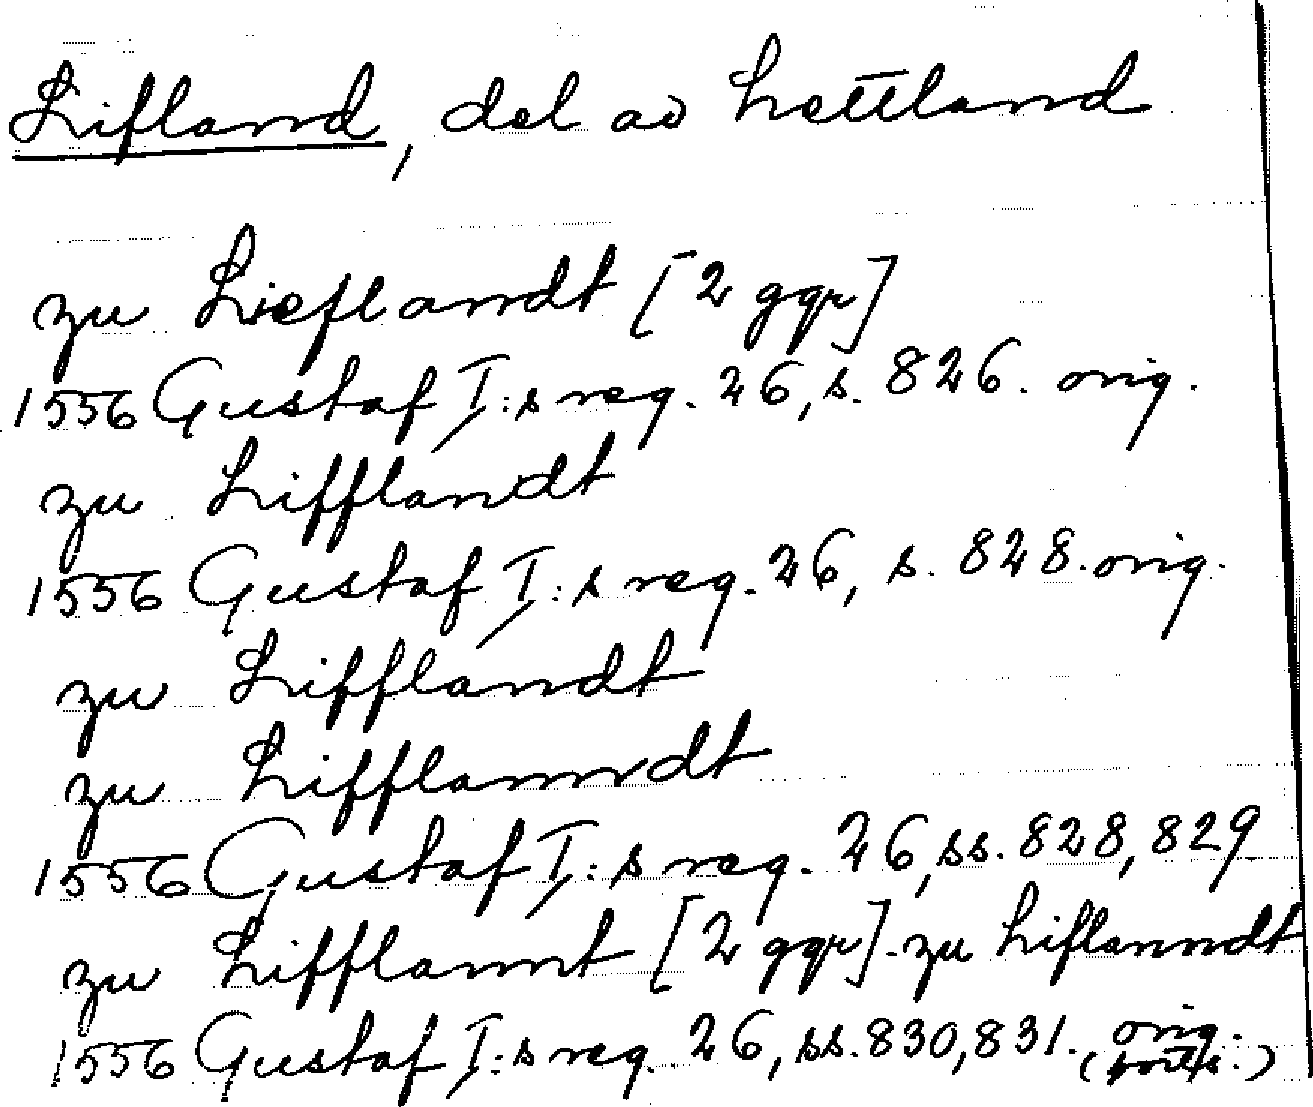 Lifland, del av Lettland
zu Lieflandt [2 ggr]
1556 Gustaf I:s reg. 26, s. 826. orig.
zu Lifflandt
1556 Gustaf I:s reg. 26, s. 828. orig.
zu Lifflandt
zu Lifflanndt
1556 Gustaf I:s reg. 26, ss. 828, 829
zu Lifflannt [2 ggr]. zu Liflanndt
1556 Gustaf I:s reg. 26, ss. 830, 831. orig.
(forts.)